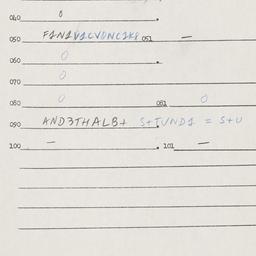 040 0 .
050 F1N1V1CVONC1K8 051 —
060 0 .
070 0
080 0 081 0
090 AND3THALB+ S+TUND1 = S+U
100 — . 101 —